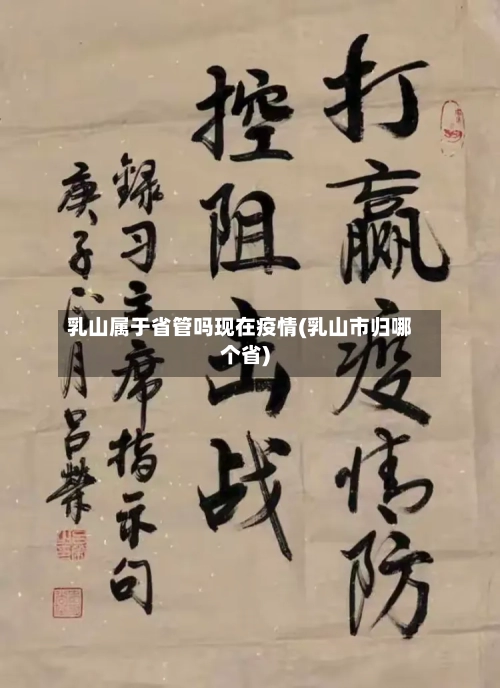 打赢疫情防
控阻击战
録习主席指示句
庚子正月吕榮
乳山属于省管吗现在疫情(乳山市归哪
个省)